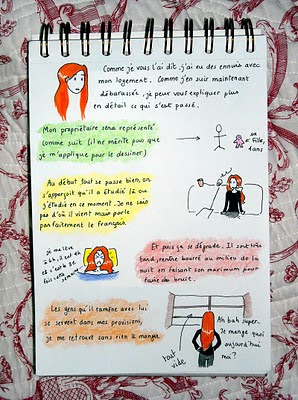 Comme je vous l'ai dit, j'ai eu des ennuis avec
mon logement. Comme j'en suis maintenant
débarassée, je peux vous expliquer plus
en détail ce qui s'est passé.
Mon propriétaire sera représenté
comme suit (il ne mérite pas que
je m'applique pour le dessiner)
sa
fille,
1 ans
Au début tout se passe bien, on
s'aperçoit qu'il a étudié là où
j'étudie en ce moment. Je ne sais
pas d'où il vient mais parle
parfaitement le français.
je me lève
à 6h, il est
et c'est la
fois cette
semaine
Et puis ça se dégrade. Il sort très
tard, rentre bourré au milieu de la
nuit en faisant son maximum pour
faire du bruit.
Les gens qu'il ramène avec lui
se servent dans mes provisions,
je me retrouve sans rien à manger
tout
vide
Ah bah super..
Je mange quoi
aujourd'hui
moi?